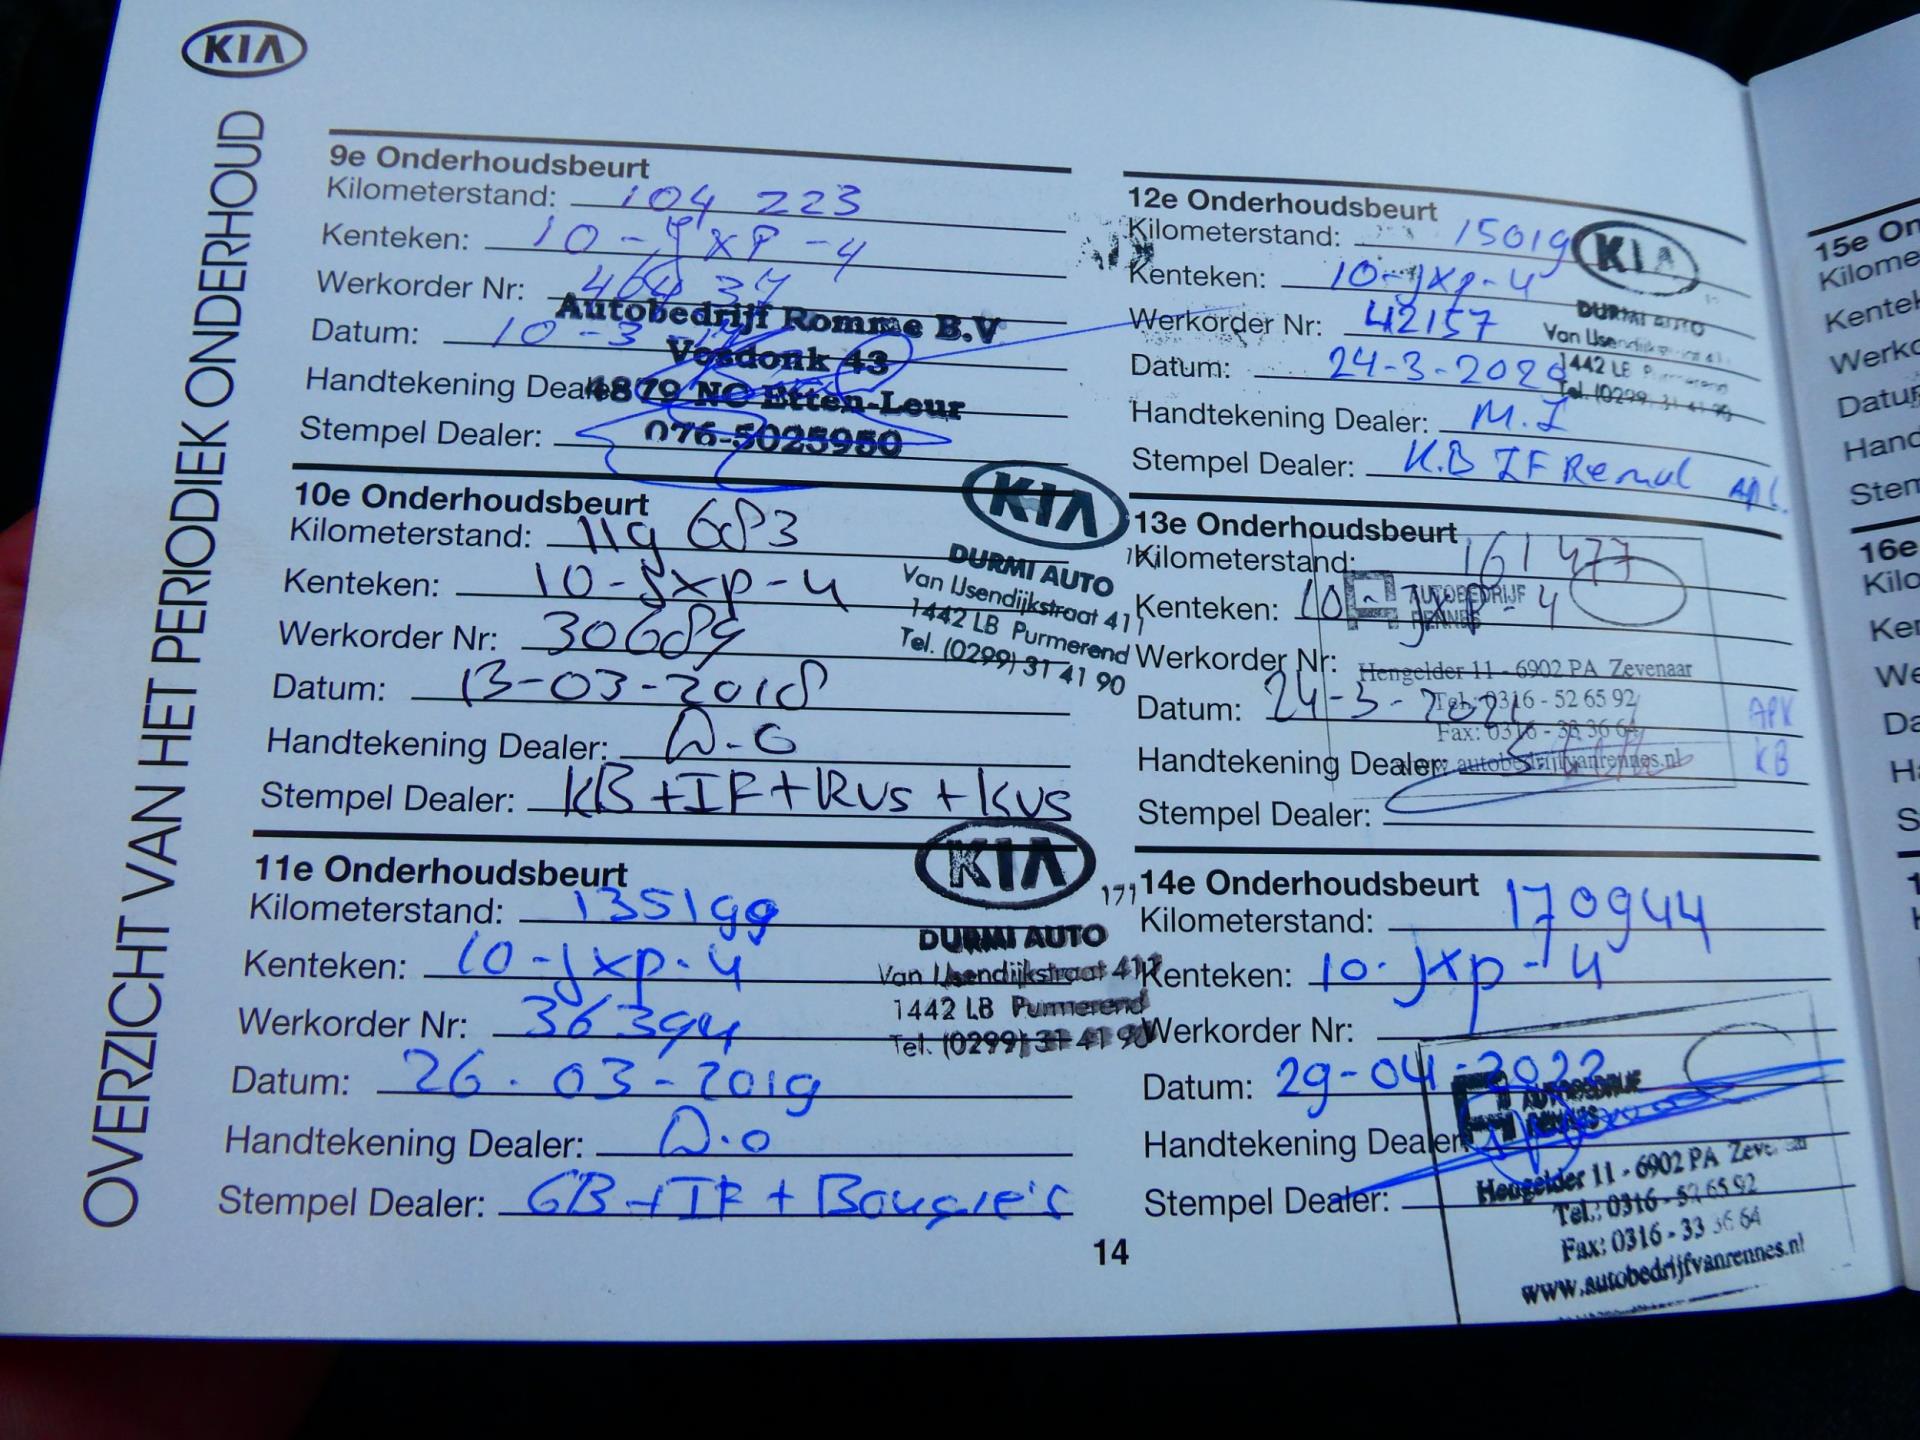 KIA
OVERZICHT VAN HET PERIODIEK ONDERHOUD
9e Onderhoudsbeurt
Kilometerstand: 104 223
Kenteken: 10-JXP-4
Werkorder Nr: 46437
Datum: 10-3-
Handtekening Dealer:
Stempel Dealer:
Autobedrijf Romme B.V
Vosdonk 43
4879 NC Etten-Leur
076-5025950
10e Onderhoudsbeurt
Kilometerstand: 119 683
Kenteken: 10-JXP-4
Werkorder Nr: 30689
Datum: 13-03-2018
Handtekening Dealer: D.O
Stempel Dealer: KB+IF+RVS+KVS
KIA
DURMI AUTO
Van IJsendijkstraat 411
1442 LB Purmerend
Tel. (0299) 31 41 90
11e Onderhoudsbeurt
Kilometerstand: 135199
Kenteken: 10-JXP-4
Werkorder Nr: 36394
Datum: 26-03-2019
Handtekening Dealer: D.O
Stempel Dealer: GB+IF+Bougie's
KIA
DURMI AUTO
Van IJsendijkstraat 411
1442 LB Purmerend
Tel. (0299) 31 41 90
12e Onderhoudsbeurt
Kilometerstand: 15019
Kenteken: 10-JXP-4
Werkorder Nr: 42157
Datum: 24-3-2020
Handtekening Dealer: M.I
Stempel Dealer: K.B IF
KIA
DURMI AUTO
Van IJsendijkstraat 411
1442 LB Purmerend
Tel. (0299) 31 41 90
13e Onderhoudsbeurt
Kilometerstand: 161477
Kenteken: 10-JXP-4
Werkorder Nr:
Datum: 24-3-2021
Handtekening Dealer:
Stempel Dealer:
APK
KB
AUTOBEDRIJF
RENNES
Hengelder 11 - 6902 PA Zevenaar
Tel.: 0316 - 52 65 92
Fax: 0316 - 33 36 64
www.autobedrijfvanrennes.nl
14e Onderhoudsbeurt
Kilometerstand: 170944
Kenteken: 10-JXP-4
Werkorder Nr:
Datum: 29-04-2022
Handtekening Dealer:
Stempel Dealer:
AUTOBEDRIJF
RENNES
Hengelder 11 - 6902 PA Zevenaar
Tel.: 0316 - 52 65 92
Fax: 0316 - 33 36 64
www.autobedrijfvanrennes.nl
14
15e On
Kilome
Kentek
Werko
Datum
Hand
Stem
16e
Kilo
Ke
We
Da
Ha
S